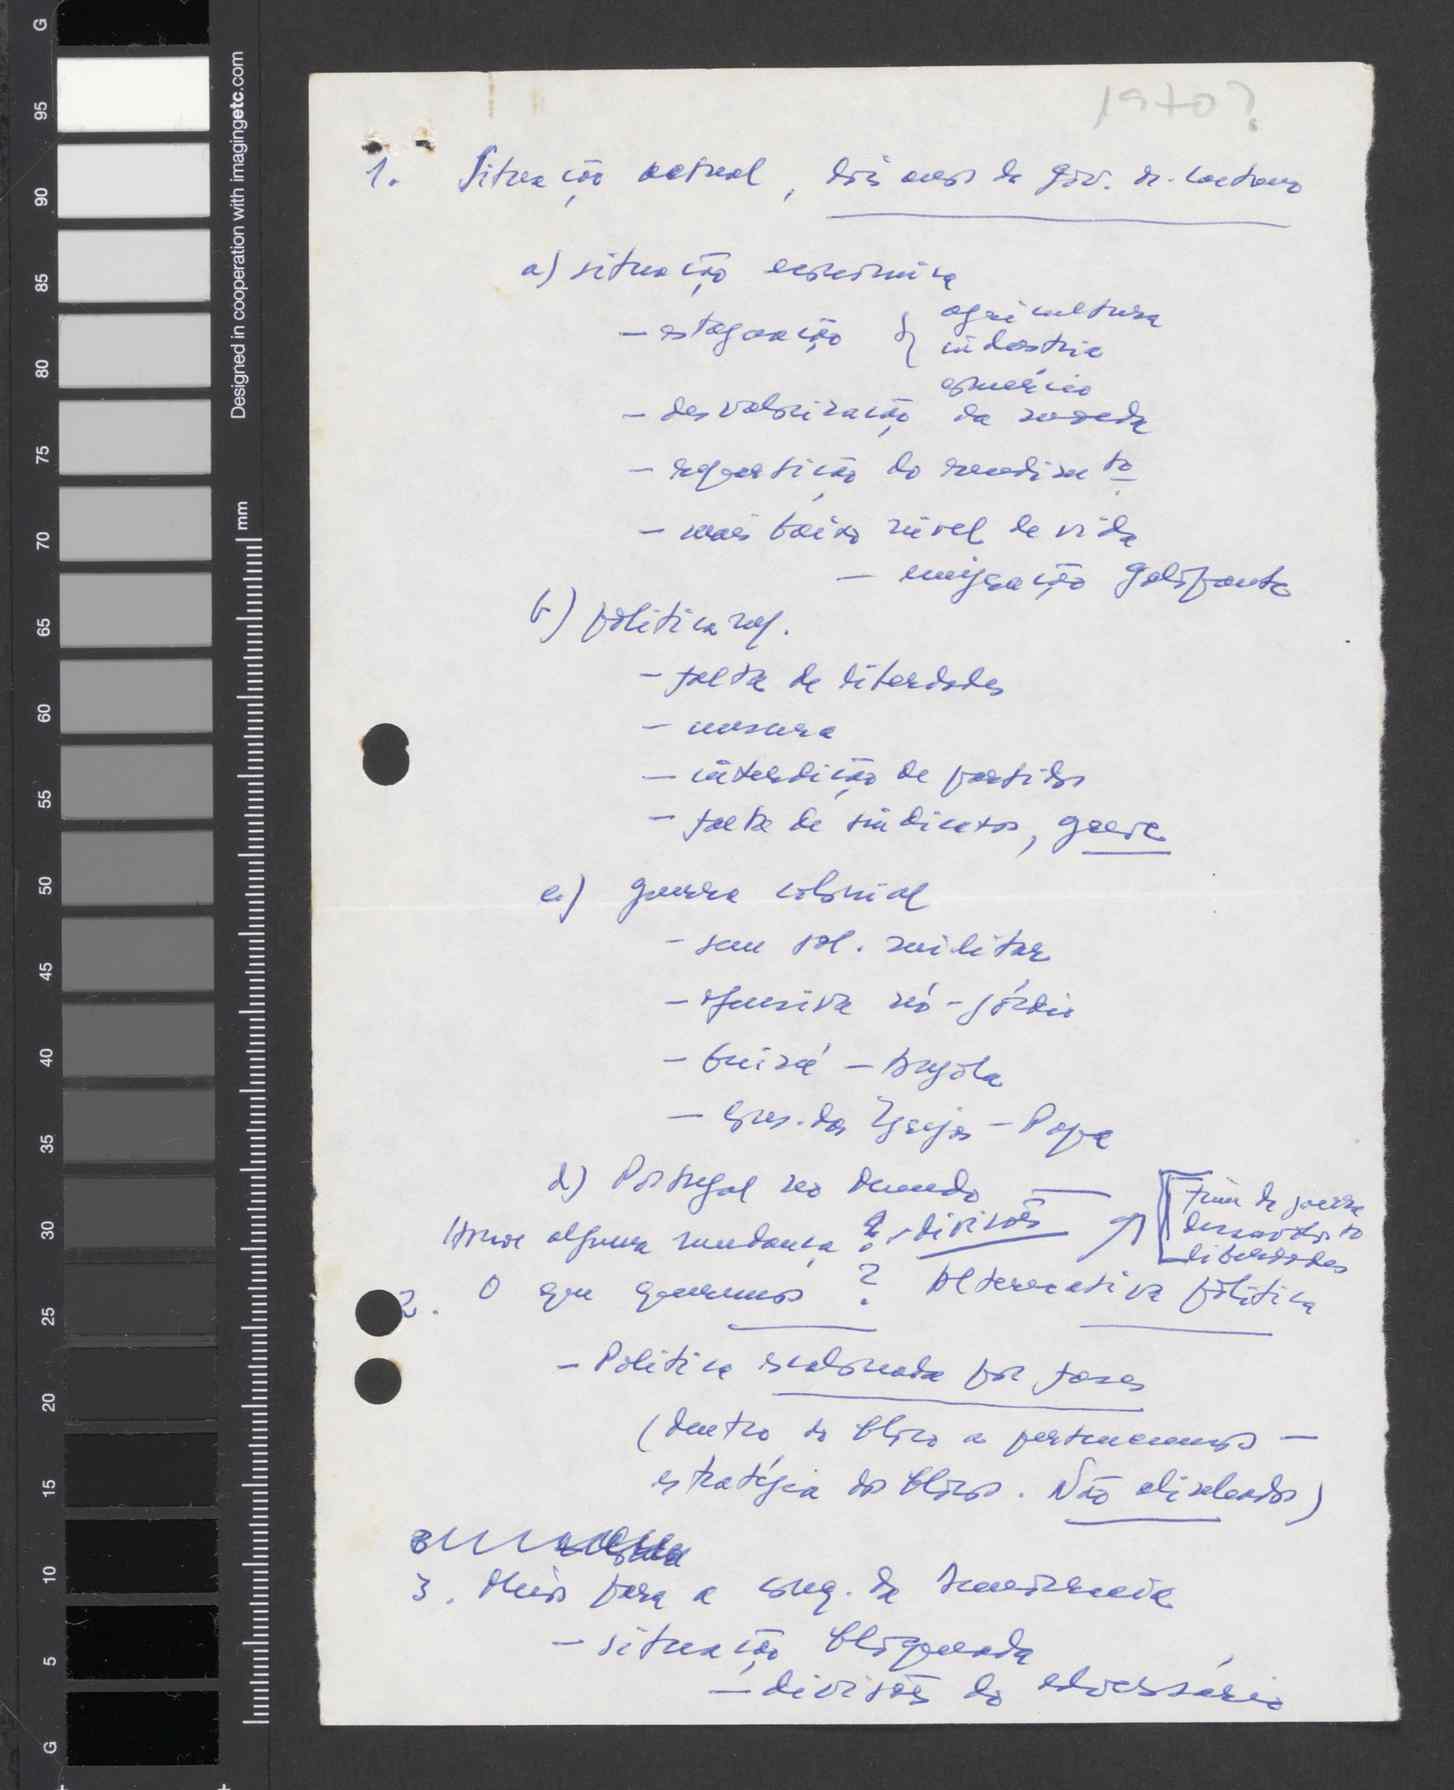 1970?
1. Situação actual, dois anos de gov. M. Caetano
a) situação económica
- estagnação { agricultura
indústria
comércio
- desvalorização da moeda
- repartição do rendimento
- mais baixo nível de vida
- emigração galopante
b) política rep.
- falta de liberdades
- censura
- interdição de partidos
- falta de sindicatos, greve
c) guerra colonial
- sem sol. militar
- ofensiva nó-górdio
- Guiné - Angola
- Cons. das Igrejas - Papa
d) Portugal no mundo
Houve alguma mudança? divisões
fim da guerra
desenvolvimto
liberdades
2. O que queremos? Alternativa política
- Política escalonada por fases
(dentro do bloco a q pertencemos -
estratégia dos blocos. Não alinhados)
3. Meios para a conq. da democracia
- situação bloqueada
- divisões do adversário
Designed in cooperation with imagingetc.com
mm
G
95
90
85
80
75
70
65
60
55
50
45
40
35
30
25
20
15
10
5
G